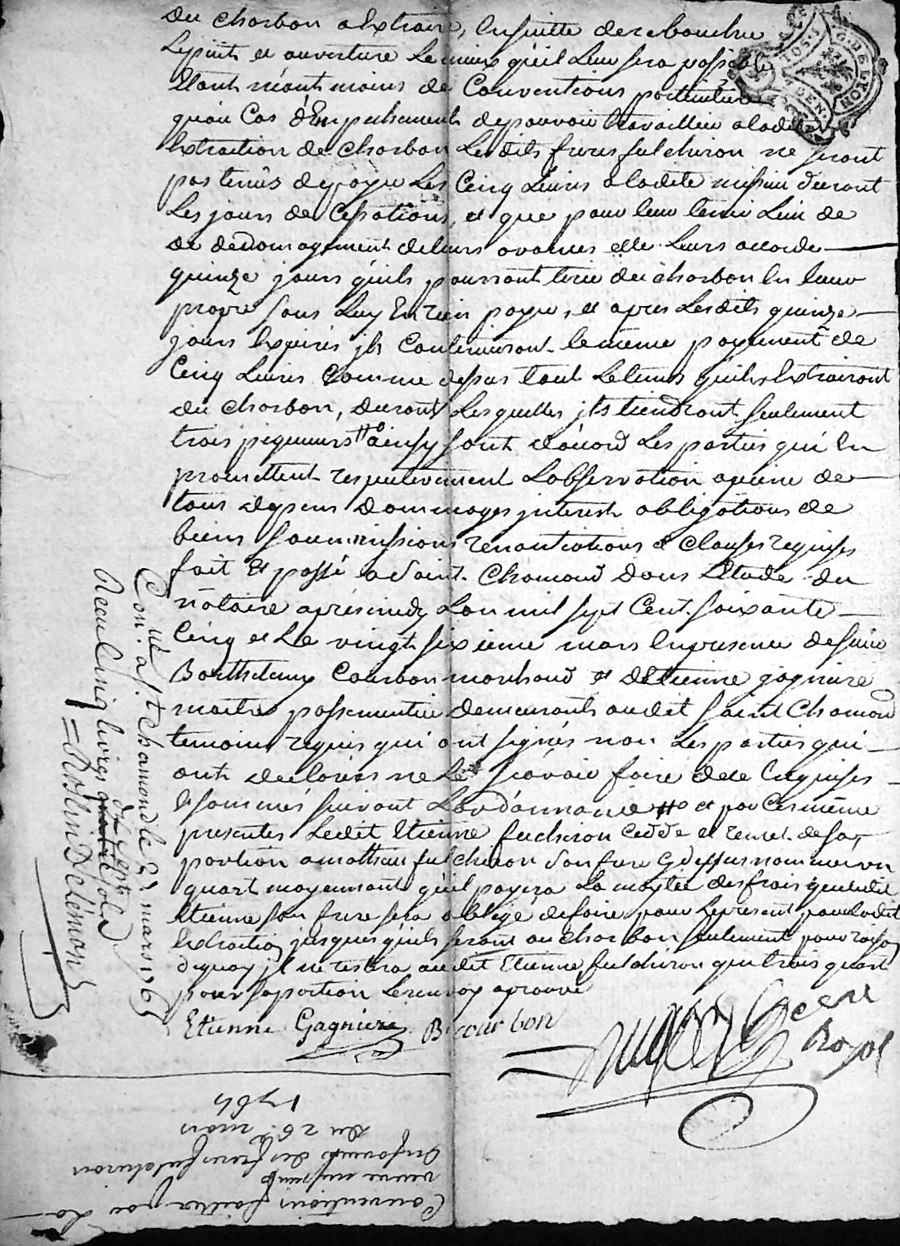 du charbon a Extraire, Ensuitte de reboucher
Le puits et ouverture Le mieux qu'il Leur sera possible
Etant néantmoins de Conventions particulière
qu'au Cas d'Empechement de pouvoir travailler a ladite
Extraction de charbon Les dits freres fulchiron ne seront
pas tenus de payer Les Cinq Livres a ladite durant
Les jours de Cessations, et que pour leur tenir Lieu de
de dedomagement de leurs avances elle Leurs accorde
quinze jours qu'ils pourront tirer du charbon En leur
propre sans Luy En rien payer, et apres Les dits quinze
jours Expirés ils Continueront le même payement de
Cinq Livres Comme dessus tout Le tems qu'ils Extrairont
du charbon, durant Lesquelles jls tiendront seulement
trois piqueurs ainsy sont d'accord Les parties qui En
promettent respectivement L'observation a peine de
tous depens dommages jnterests obligations de
biens soumissions renontiations & clauses requises
fait Et passé a Saint Chamond dans L'Etude du
notaire L'an mil sept Cent soixante
Cinq et Le vingt sixieme mars En presence de sieur
Barthelemy Courbon marchand et d'Etienne gagniere
maitre passementier demeurants audit Saint Chamond
temoins requis qui ont signés non Les parties qui
ont declarées ne Le sçavoir faire de ce Enquises
& sommés suivant L'ordonnance et par Ces mêmes
presentes Ledit Etienne fulchiron Cedde et remet de sa
portion a mathieu fulchiron son frere Cy dessus nommé un
quart moyennant qu'il payera La moytié des frais que ledit
Etienne son frere sera obligé de faire pour Le present pour ladite
Extraction jusques qu'ils seront au charbon seulement pour raison
dequoy jl ne restera audit Etienne fulchiron que trois quart
pour sa portion Le renvoy aprouvé
Etienne Gagniere B Courbon
Royal
Con.lé a St chamond le 27 mars 176
Reçu Cinq livres
Conventions faittes par La
veuve
des freres fulchiron
du 26e mars